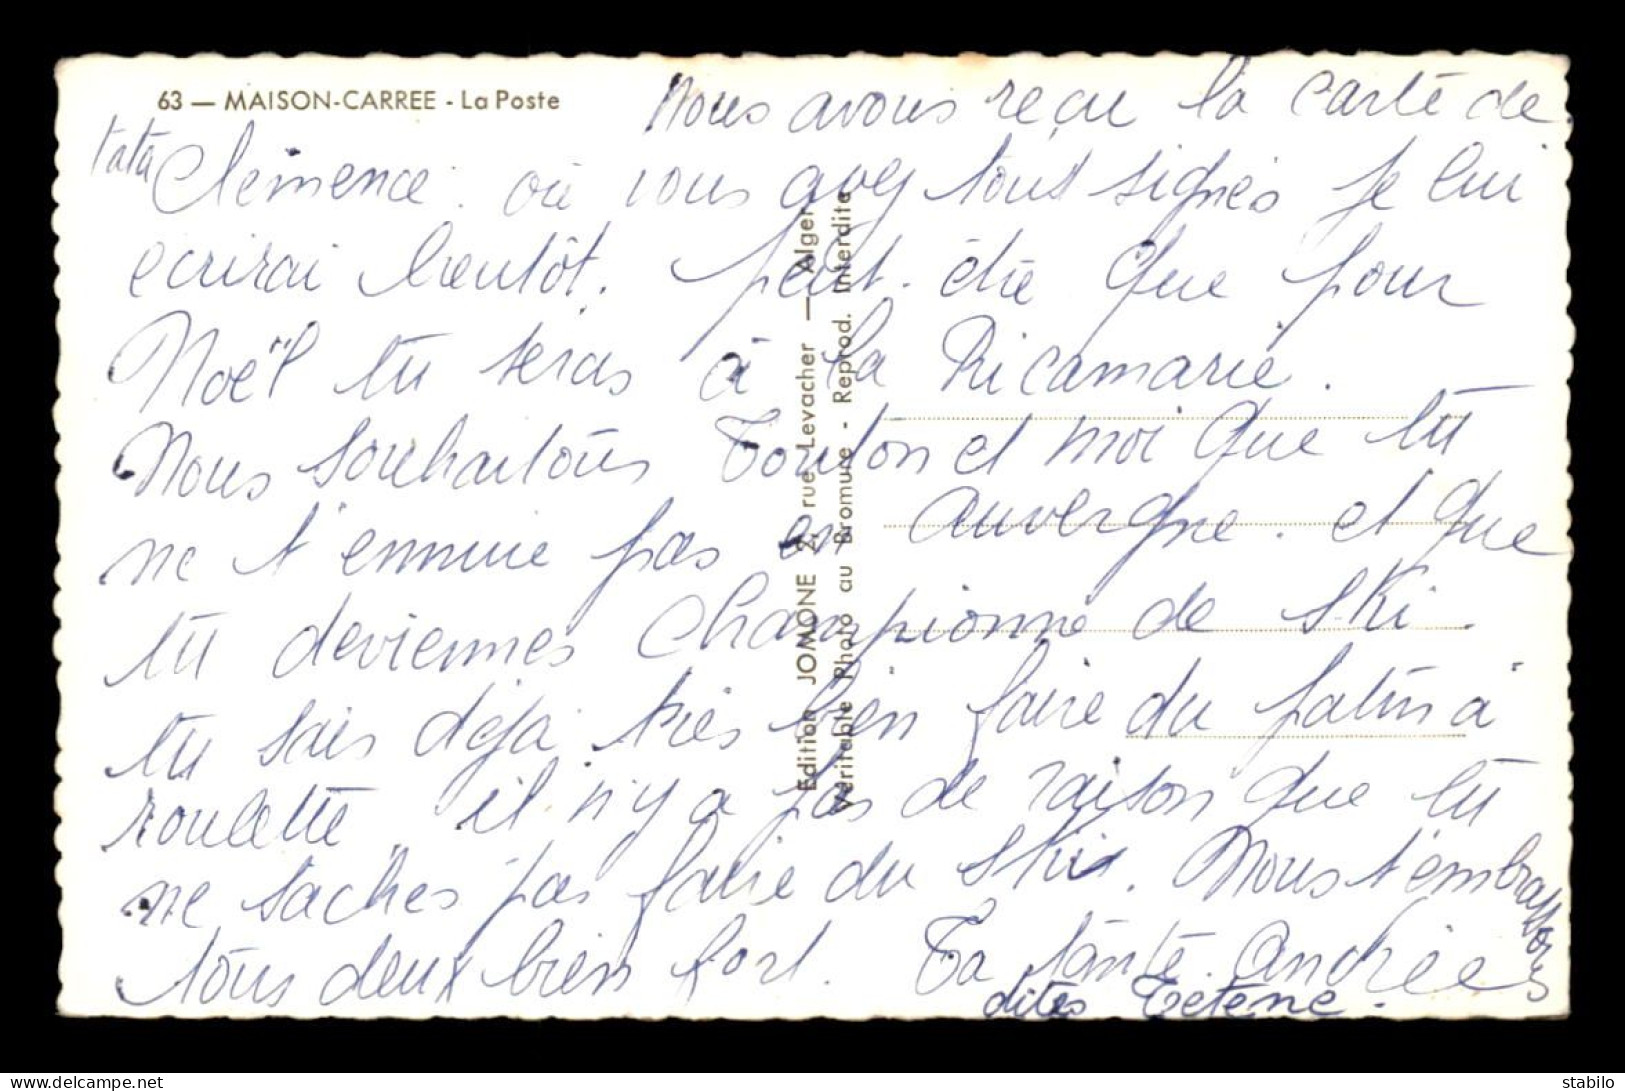 63 — MAISON-CARREE - La Poste
Nous avons reçu la carte de
tata Clémence. où vous avez tous signés je lui
ecrirai bientôt. peut-être que pour
Noël tu seras à la Ricamarie.
Nous souhaitons Tonton et moi que tu
ne t'ennuie pas en auvergne. et que
tu deviennes championne de ski.
tu sais déjà très bien faire du patin à
roulette, il n'y a pas de raison que tu
ne saches pas faire du ski. Nous t'embrassons
tous deux bien fort. Ta tante Andrée
dites Tetene.
Edition JOMONE 2, rue Levacher — Alger
Véritable Photo au Bromure - Reprod. Interdite
stabilo